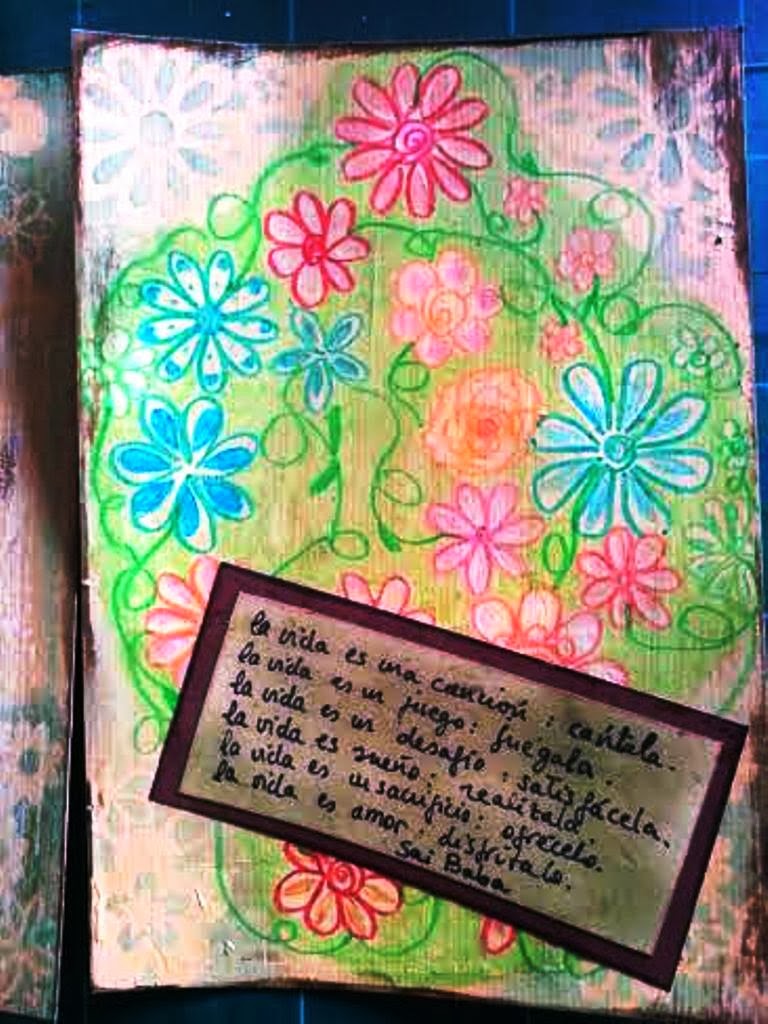 la vida es una canción: cántala.
la vida es un juego: juegala.
la vida es un desafío: satisfácela.
la vida es sueño: realízalo
la vida es un sacrificio: ofrecelo.
la vida es amor: disfrútalo.
Sai Baba